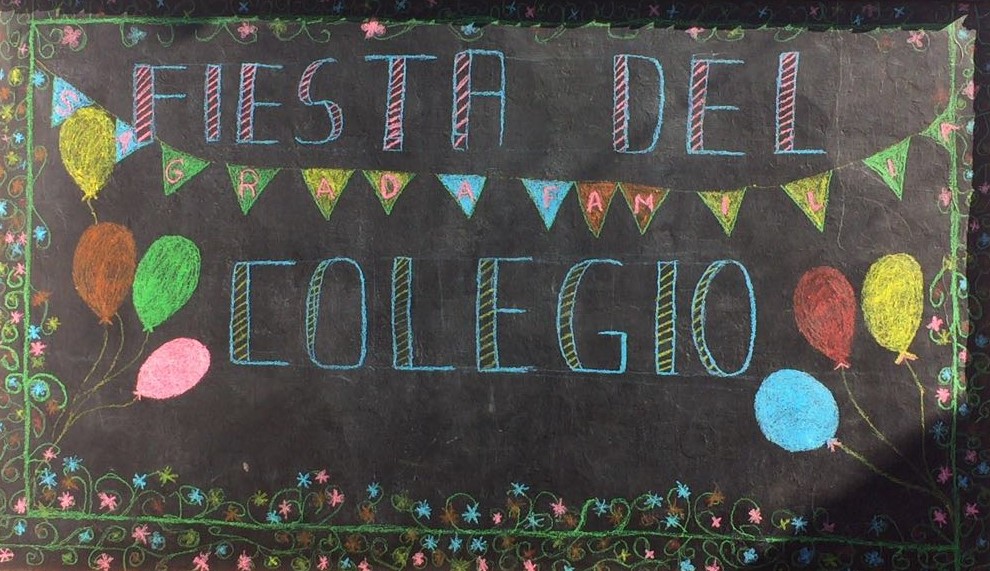 FIESTA DEL
SAGRADA FAMILIA
COLEGIO